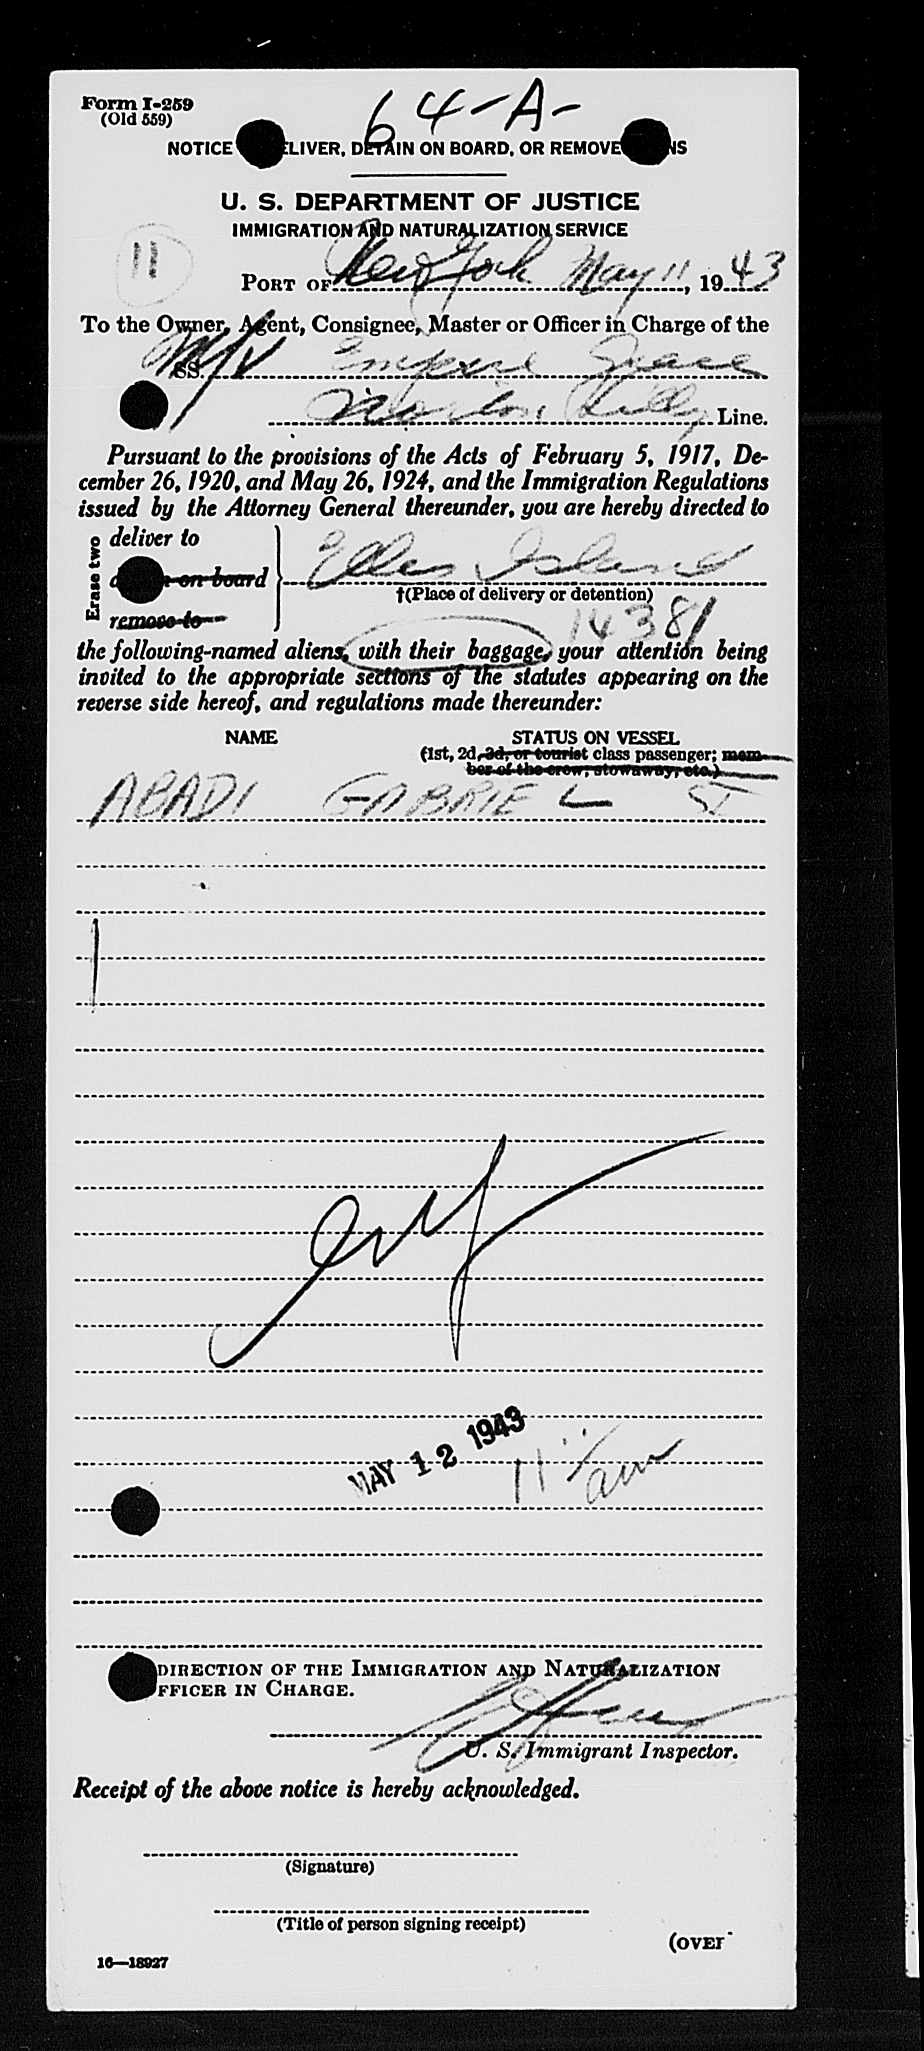 Form I-259
(Old 559)
64-A-
NOTICE LIVER, DETAIN ON BOARD, OR REMOVE NS
U. S. DEPARTMENT OF JUSTICE
IMMIGRATION AND NATURALIZATION SERVICE
11
PORT OF New York May 11, 1943
To the Owner, Agent, Consignee, Master or Officer in Charge of the
M/V SS. Empire Grace
Line.
Pursuant to the provisions of the Acts of February 5, 1917, De-
cember 26, 1920, and May 26, 1924, and the Immigration Regulations
issued by the Attorney General thereunder, you are hereby directed to
Erase two
deliver to
on board
remove to
Ellis Island
†(Place of delivery or detention)
14381
the following-named aliens, with their baggage, your attention being
invited to the appropriate sections of the statutes appearing on the
reverse side hereof, and regulations made thereunder:
NAME STATUS ON VESSEL
(1st, 2d, 3d, or tourist class passenger; mem-
ber of the crew, stowaway, etc.)
ABADI GABRIEL
MAY 12 1943 11 am
DIRECTION OF THE IMMIGRATION AND NATURALIZATION
FFICER IN CHARGE.
U. S. Immigrant Inspector.
Receipt of the above notice is hereby acknowledged.
(Signature)
(Title of person signing receipt)
(OVER
16—18927